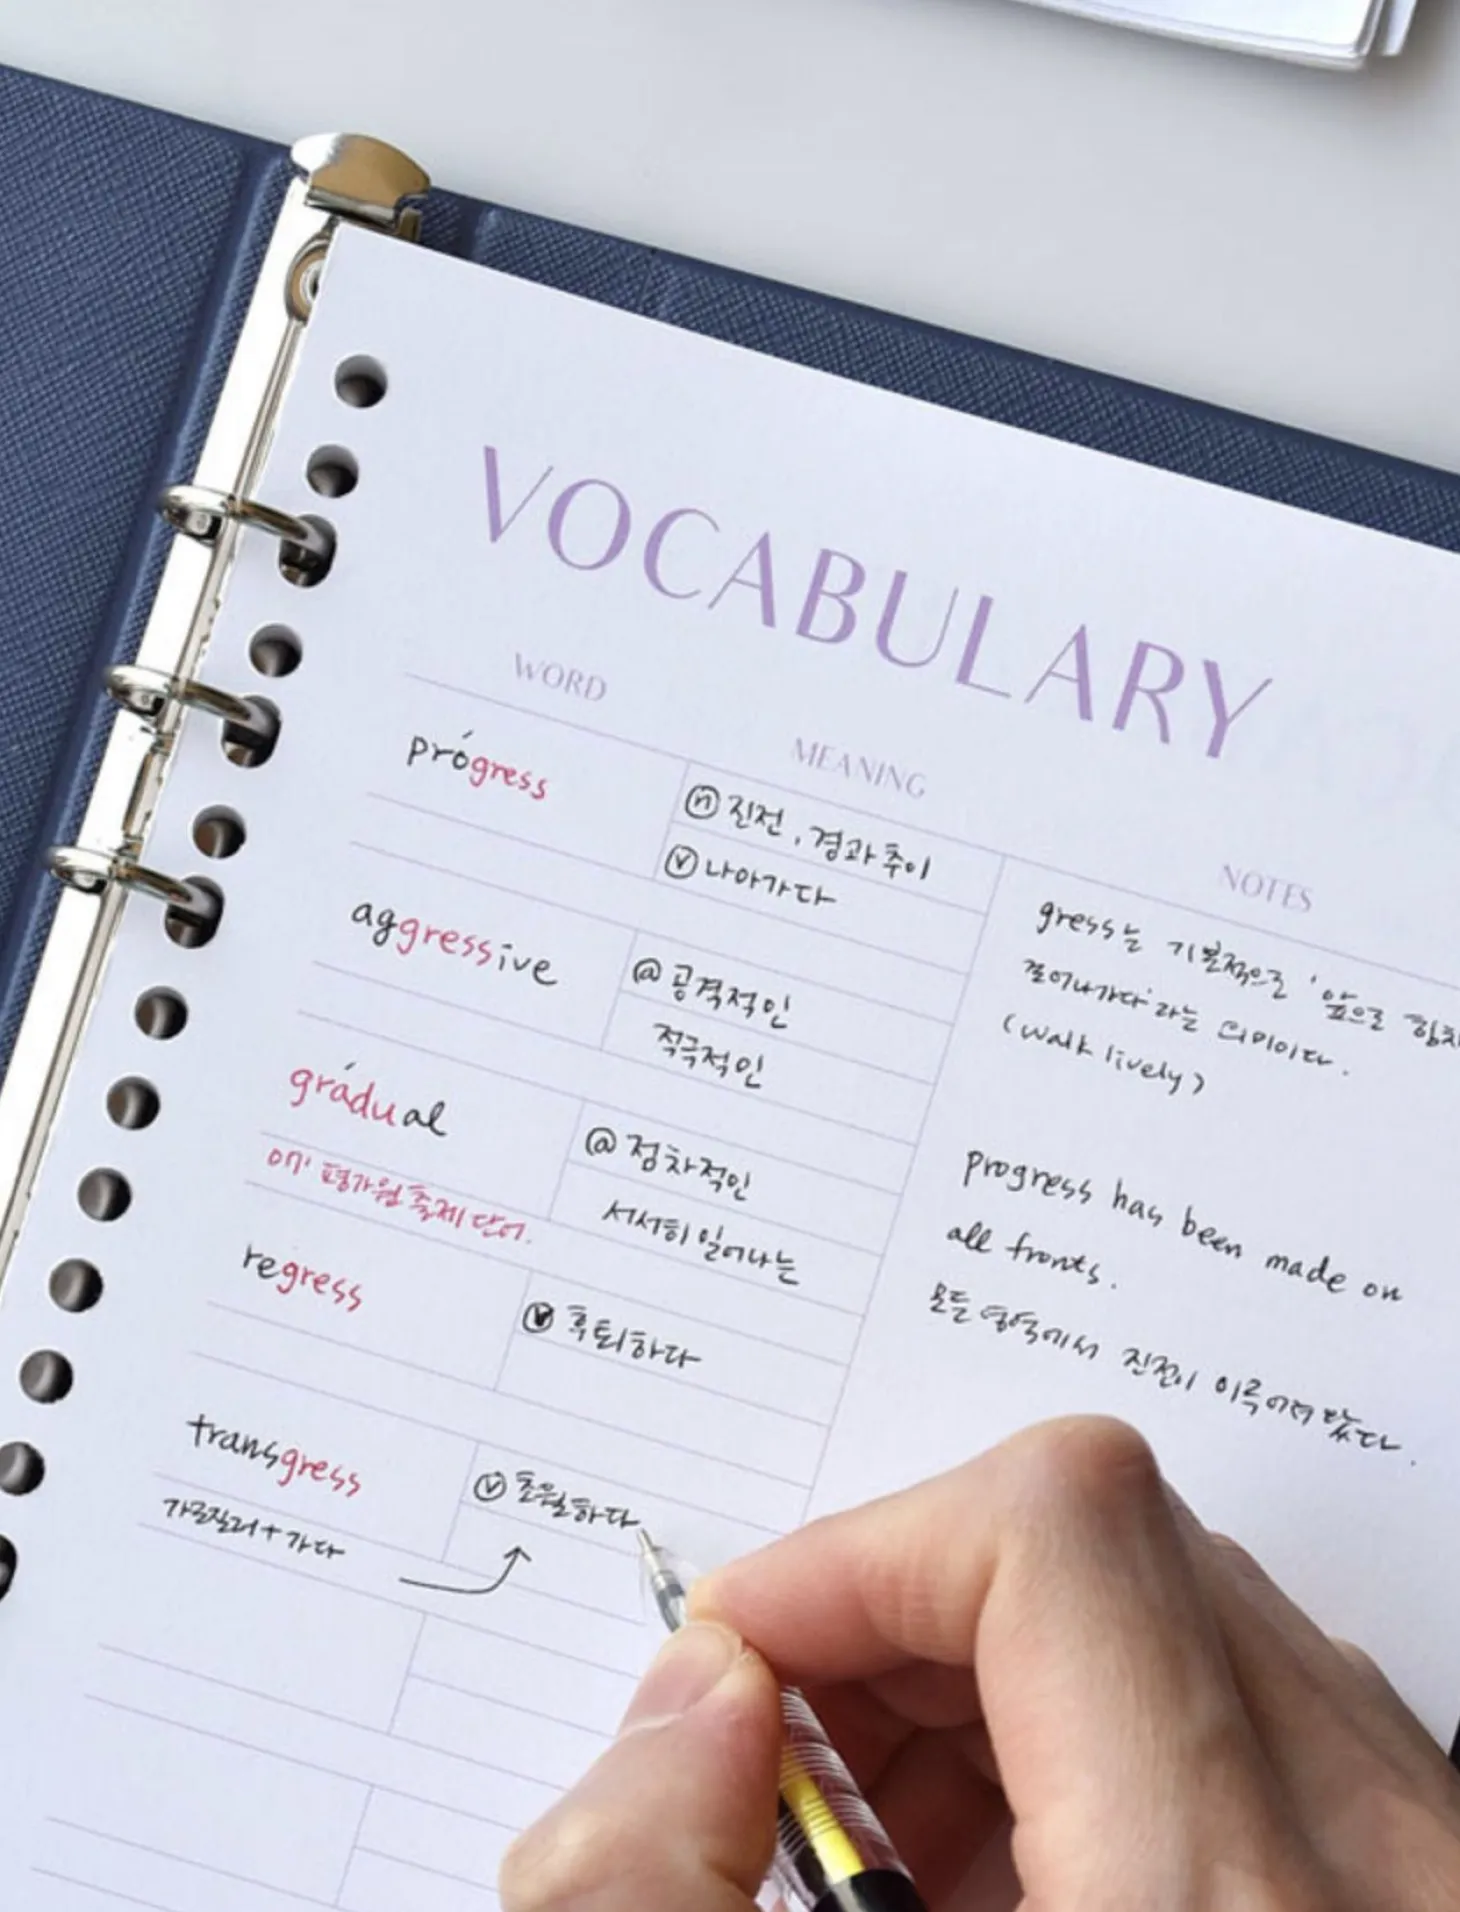 VOCABULARY
WORD
MEANING
NOTES
prógress
ⓝ 진전, 경과 추이
ⓥ 나아가다
aggressive
ⓐ 공격적인
적극적인
grádual
ⓐ 점차적인
07' 평가원 출제 단어.
서서히 일어나는
regress
ⓥ 후퇴하다
transgress
ⓥ 초월하다
가로질러 + 가다
gress는 기본적으로 '앞으로 힘차
걸어나가다'라는 의미이다.
(walk lively)
progress has been made on
all fronts.
모든 영역에서 진전이 이루어져 왔다.